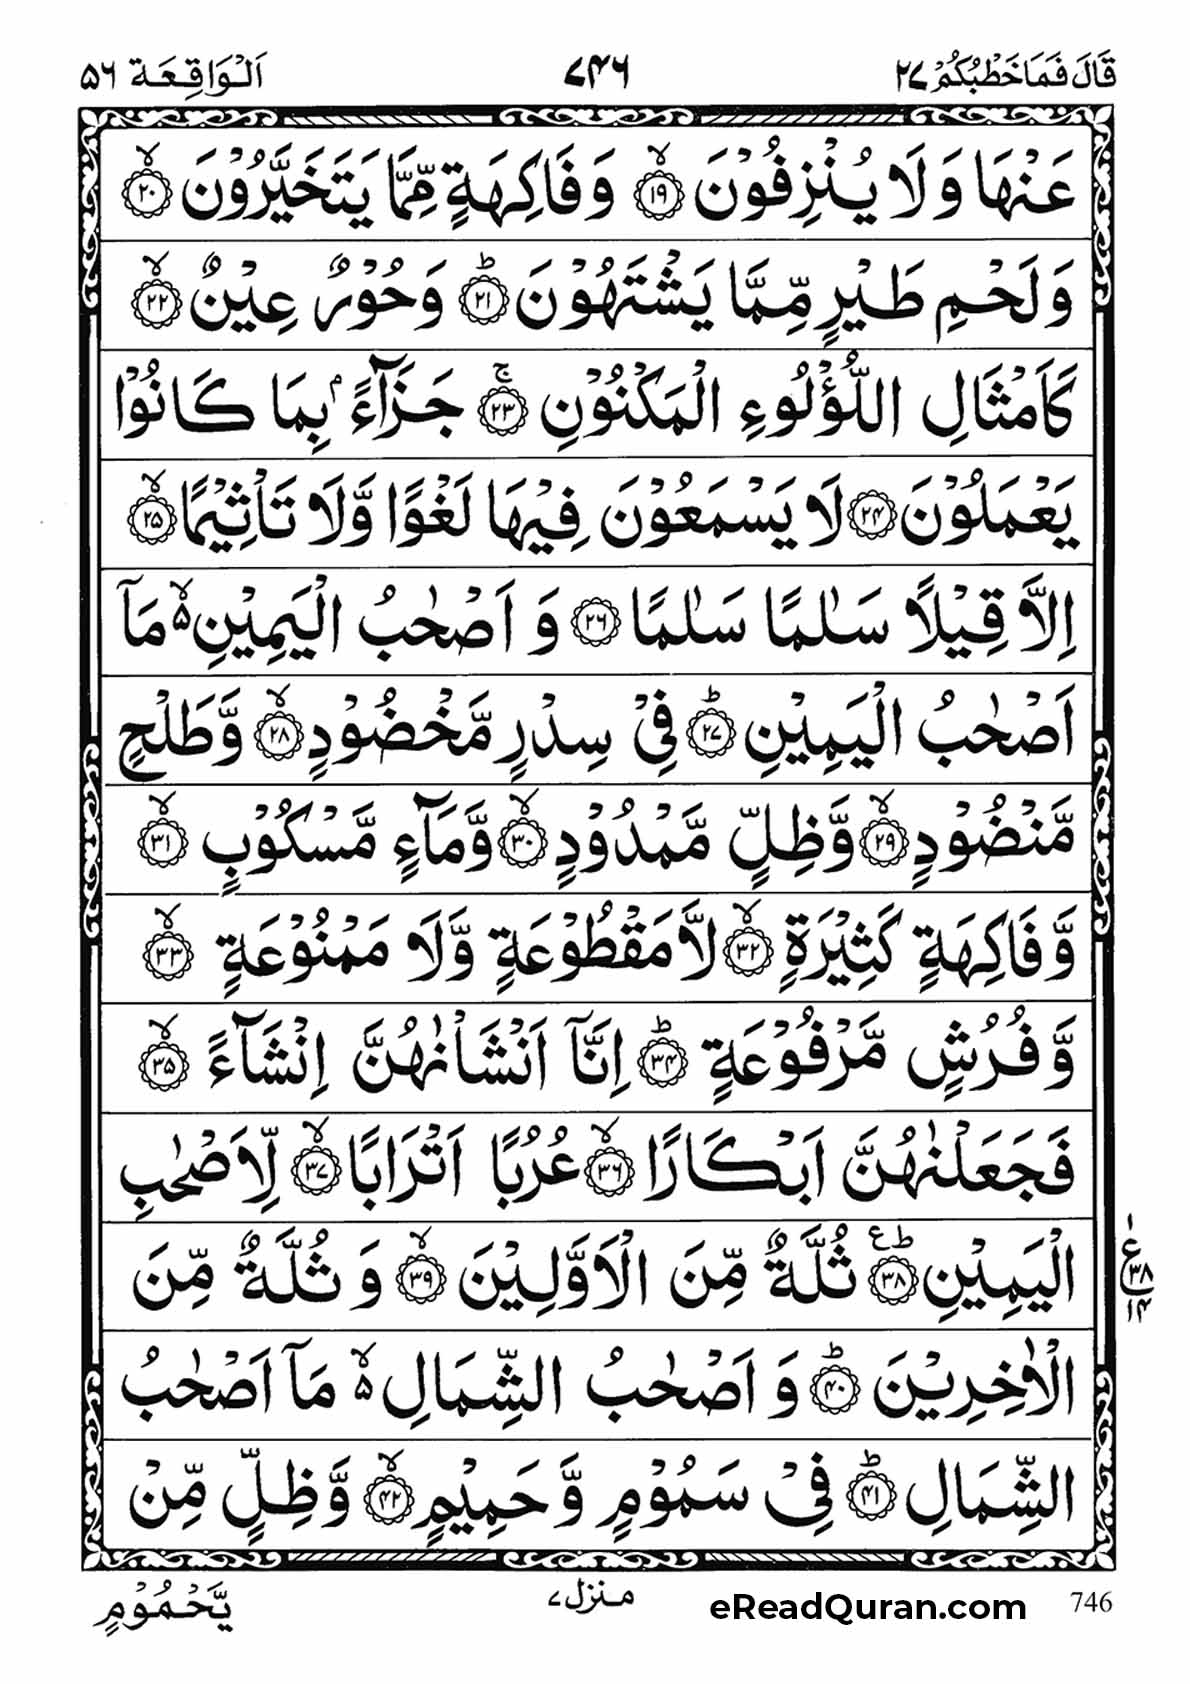 قَالَ فَمَا خَطْبُكُمْ ٢٧ ٧٤٦ اَلْوَاقِعَة ٥٦
عَنْهَا وَلَا يُنْزِفُوْنَ ۙ﴿۱۹﴾ وَفَاكِهَةٍ مِّمَّا يَتَخَيَّرُوْنَ ۙ﴿۲۰﴾
وَلَحْمِ طَيْرٍ مِّمَّا يَشْتَهُوْنَ ؕ﴿۲۱﴾ وَحُوْرٌ عِيْنٌ ۙ﴿۲۲﴾
كَاَمْثَالِ اللُّؤْلُوءِ الْمَكْنُوْنِ ۚ﴿۲۳﴾ جَزَآءًۢ بِمَا كَانُوْا
يَعْمَلُوْنَ ﴿۲۴﴾ لَا يَسْمَعُوْنَ فِيْهَا لَغْوًا وَّلَا تَاْثِيْمًا ۙ﴿۲۵﴾
اِلَّا قِيْلًا سَلٰمًا سَلٰمًا ﴿۲۶﴾ وَ اَصْحٰبُ الْيَمِيْنِ ۬ۙ مَاۤ
اَصْحٰبُ الْيَمِيْنِ ؕ﴿۲۷﴾ فِيْ سِدْرٍ مَّخْضُوْدٍ ۙ﴿۲۸﴾ وَّطَلْحٍ
مَّنْضُوْدٍ ۙ﴿۲۹﴾ وَّظِلٍّ مَّمْدُوْدٍ ۙ﴿۳۰﴾ وَّمَآءٍ مَّسْكُوْبٍ ۙ﴿۳۱﴾
وَّفَاكِهَةٍ كَثِيْرَةٍ ۙ﴿۳۲﴾ لَّا مَقْطُوْعَةٍ وَّلَا مَمْنُوْعَةٍ ۙ﴿۳۳﴾
وَّفُرُشٍ مَّرْفُوْعَةٍ ؕ﴿۳۴﴾ اِنَّاۤ اَنْشَاْنٰهُنَّ اِنْشَآءً ۙ﴿۳۵﴾
فَجَعَلْنٰهُنَّ اَبْكَارًا ۙ﴿۳۶﴾ عُرُبًا اَتْرَابًا ۙ﴿۳۷﴾ لِّاَصْحٰبِ
الْيَمِيْنِ ؕ﴿۳۸﴾ ع ثُلَّةٌ مِّنَ الْاَوَّلِيْنَ ۙ﴿۳۹﴾ وَ ثُلَّةٌ مِّنَ
۱ ع ۳۸ ۱۴
الْاٰخِرِيْنَ ؕ﴿۴۰﴾ وَ اَصْحٰبُ الشِّمَالِ ۬ۙ مَاۤ اَصْحٰبُ
الشِّمَالِ ؕ﴿۴۱﴾ فِيْ سَمُوْمٍ وَّ حَمِيْمٍ ۙ﴿۴۲﴾ وَّظِلٍّ مِّنْ
يَّحْمُوْمٍ منزل ٧ eReadQuran.com 746